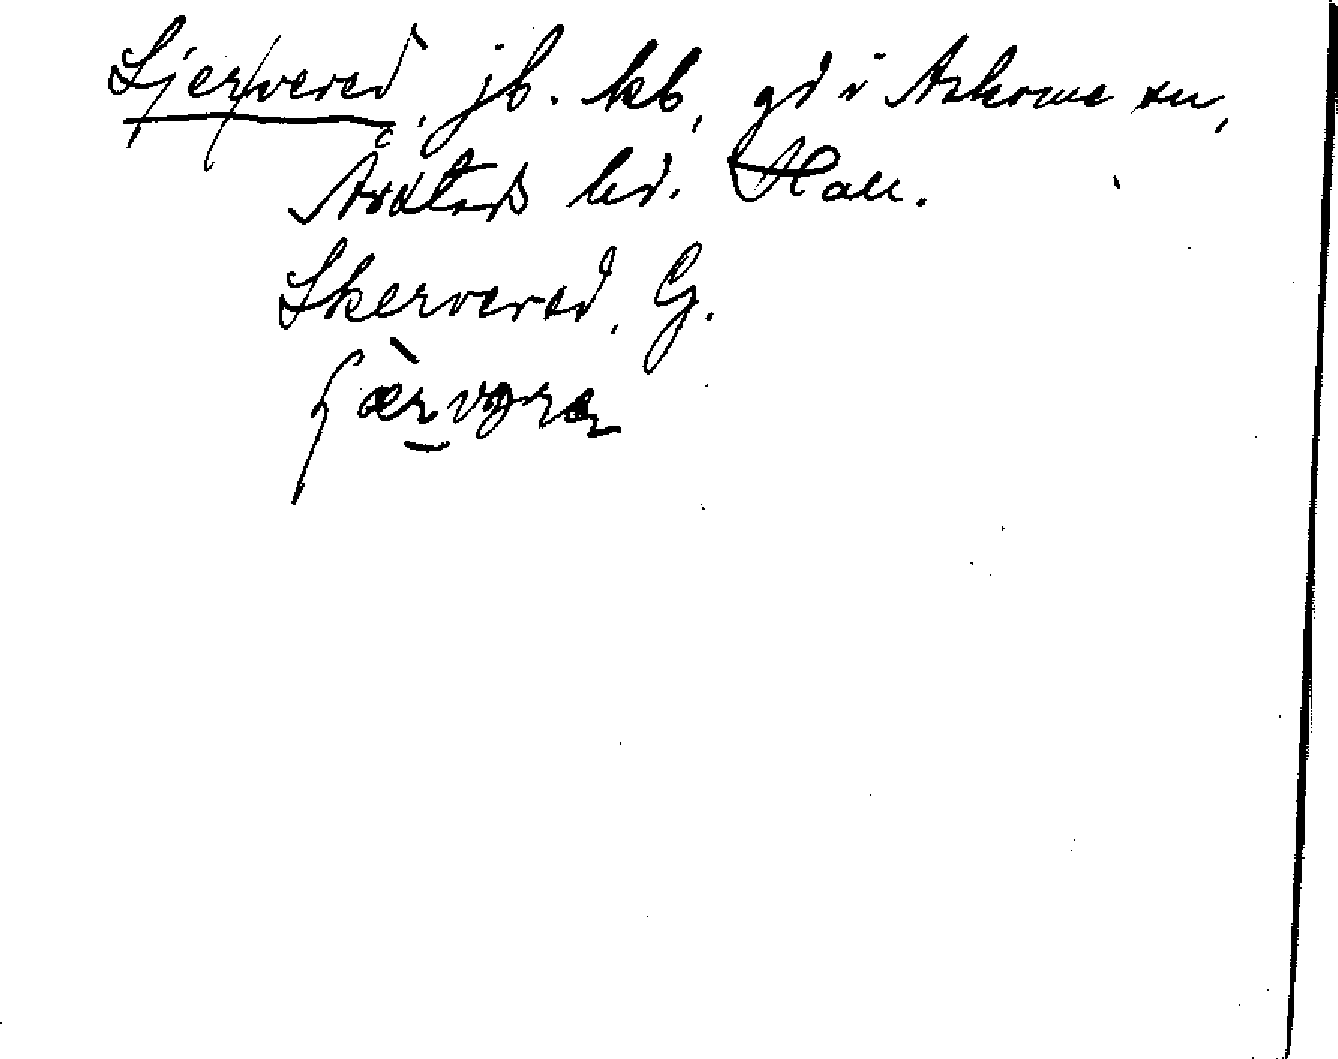 Sjervered, jb. kb, gd i Askome sn,
Årstads hd. Hall.
Skervered, G.